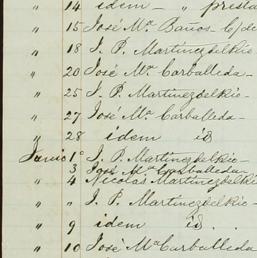 " 14 idem - " presta
" 15 José Mª Baños c/de
" 18 J. P. Martinezdelkio
" 20 José Mª Carballeda -
" 25 J. P. Martinezdelkio -
" 27 José Mª Carballeda -
" 28 idem id
Junio 1° J. P. Martinezdelkio -
" 3 José Mª Carballeda
" 4 Nicolas Martinezdelki
" " J. P. Martinezdelkio -
" 9 idem id . .
" 10 José Mª Carballeda